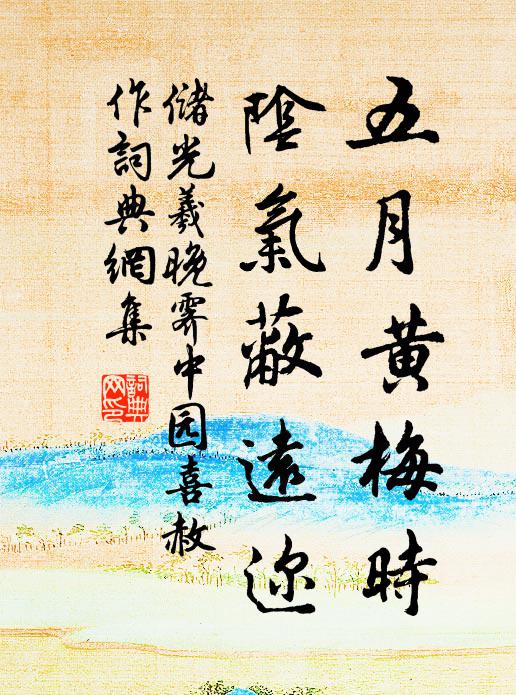 五月黄梅時
陰氣蔽遠迩
儲光羲晚霽中园喜赦
作詞典網集
詞典
网印